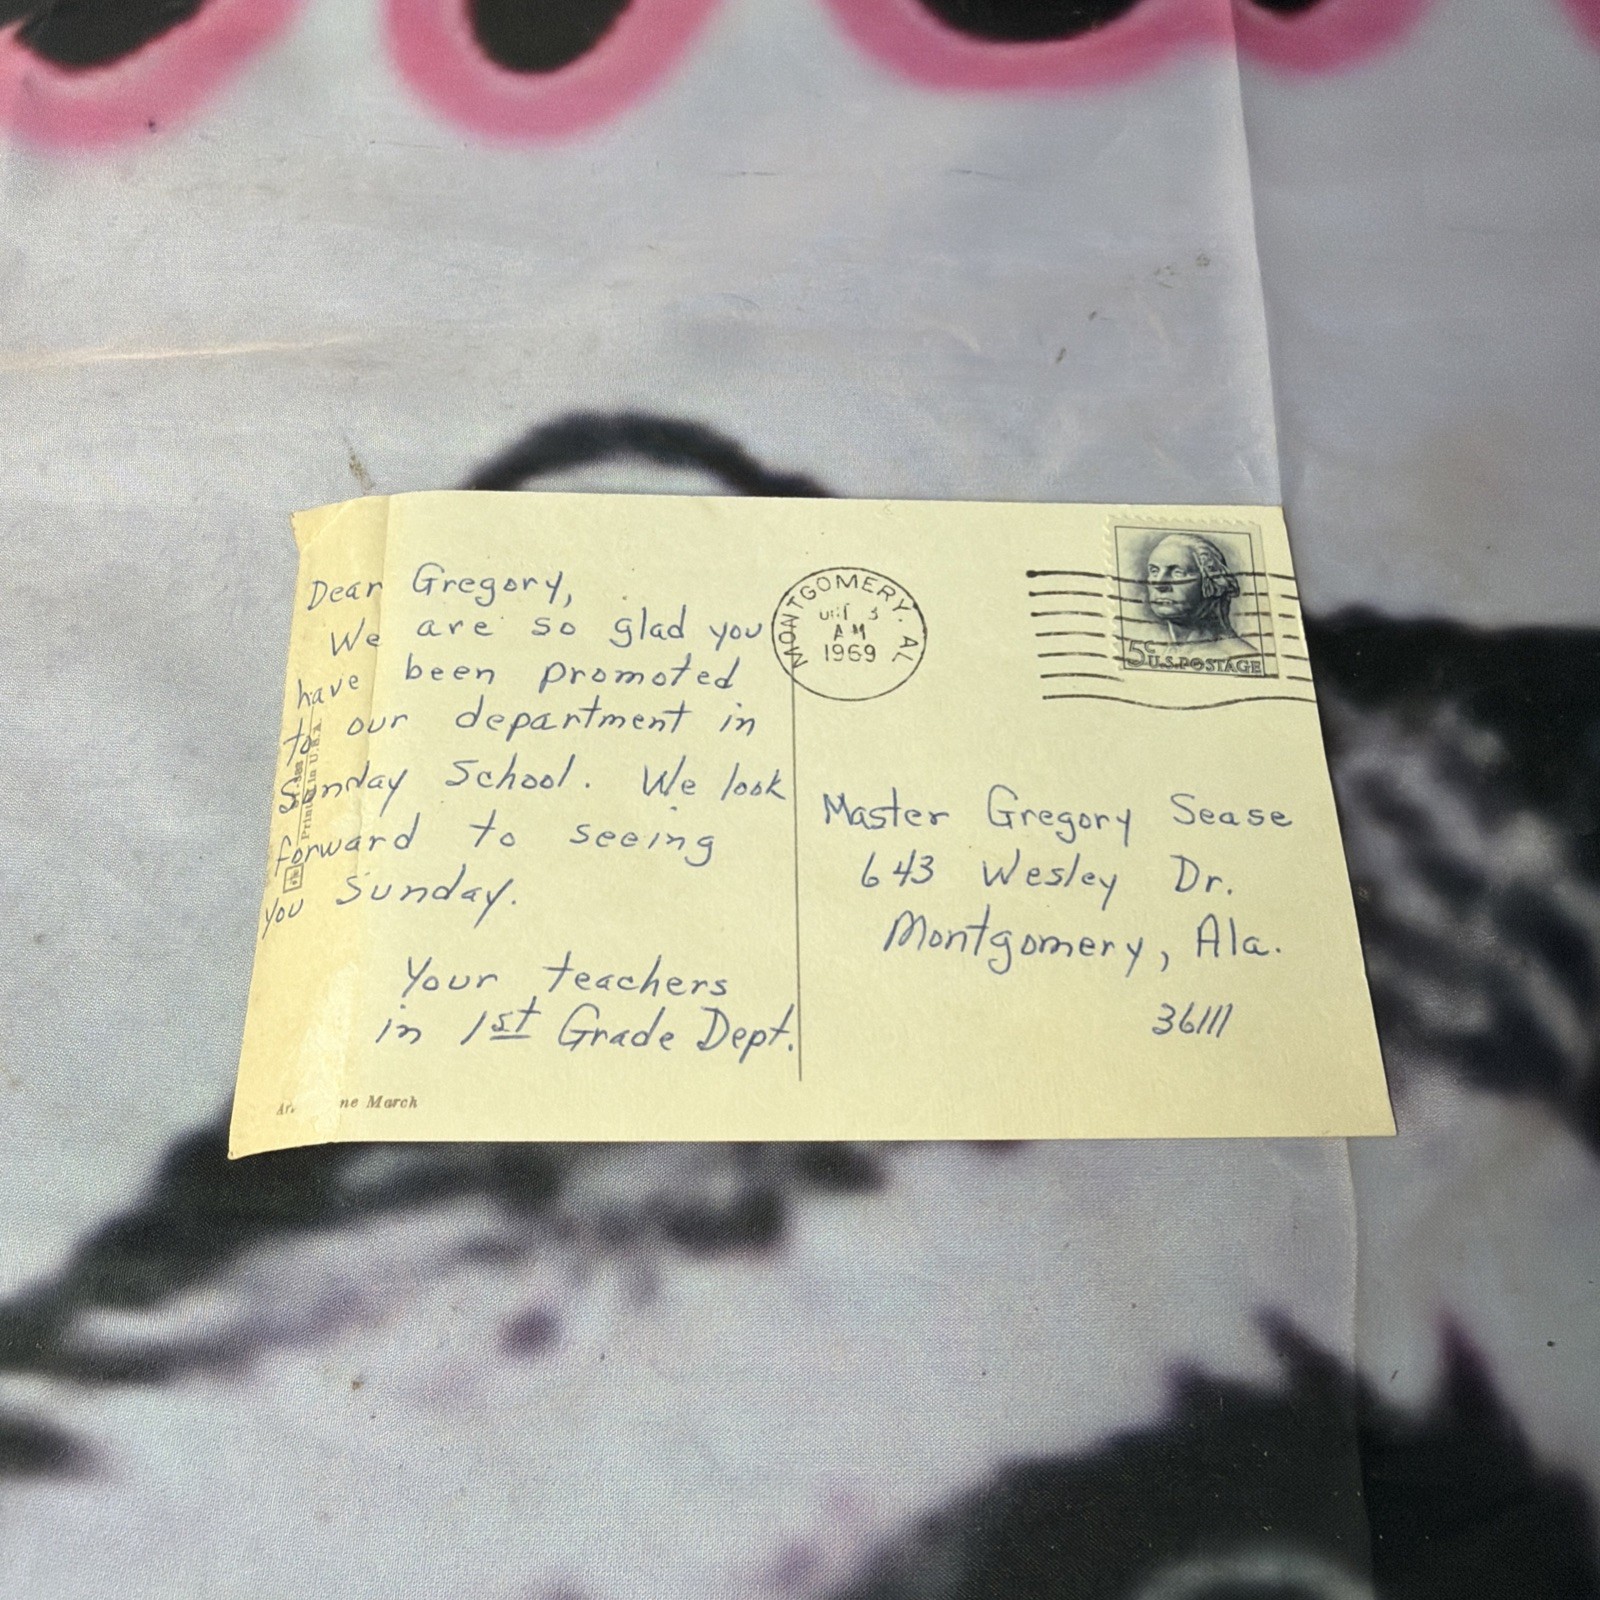 Dear Gregory,
We are so glad you
have been promoted
to our department in
Sunday School. We look
forward to seeing
you Sunday.
Your teachers
in 1st Grade Dept.
ne March
Printed in U.S.A.
MONTGOMERY, AL
3
AM
1969
5c U.S. POSTAGE
Master Gregory Sease
643 Wesley Dr.
Montgomery, Ala.
36111